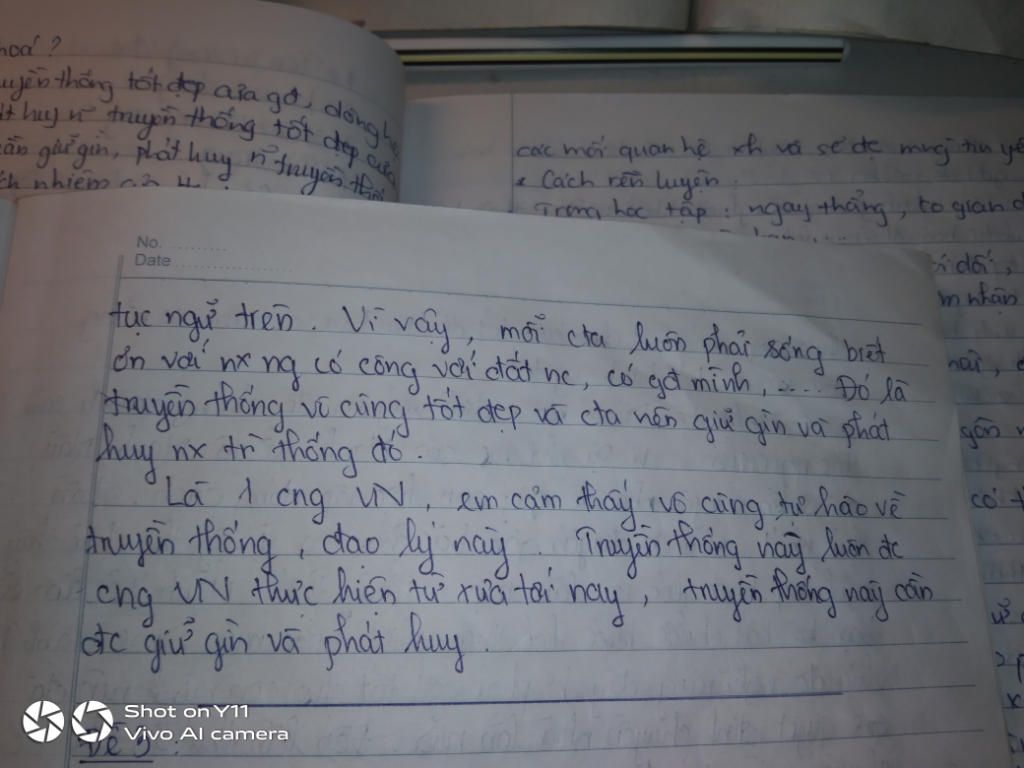 hoá?
truyền thống tốt đẹp của gđ, dòng họ
huy n~ truyền thống tốt đẹp của
giữ gìn, phát huy n~ truyền thống
nhiệm
các mối quan hệ xh và sẽ đc mọi tin yê
* Cách rèn luyện:
Trong học tập: ngay thẳng, ko gian d
dối,
m nhận
No.
Date
tục ngữ trên. Vì vậy, mỗi cta luôn phải sống biết
ơn với nx ng có công với đất nc, có gđ mình, .... Đó là
truyền thống vô cùng tốt đẹp và cta nên giữ gìn và phát
huy nx tr` thống đó.
Là 1 cng VN, em cảm thấy vô cùng tự hào về
truyền thống, đạo lý này. Truyền thống này luôn đc
cng VN thực hiện từ xưa tới nay, truyền thống này cần
đc giữ gìn và phát huy.
Đề 5:
Shot on Y11
Vivo AI camera